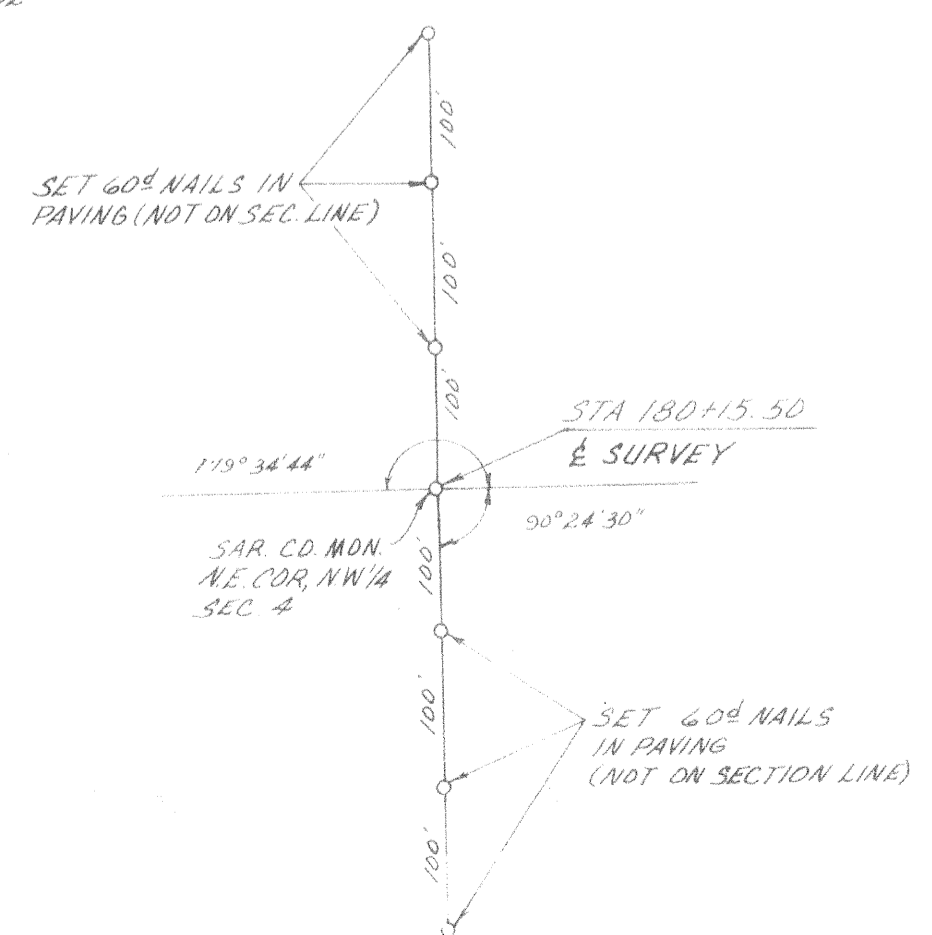 100'
SET 60d NAILS IN
PAVING (NOT ON SEC. LINE)
100'
100'
STA 180+15.50
℄ SURVEY
179° 34' 44"
90° 24' 30"
SAR. CO. MON.
N.E. COR, NW 1/4
SEC. 4
100'
100'
SET 60d NAILS
IN PAVING
(NOT ON SECTION LINE)
100'